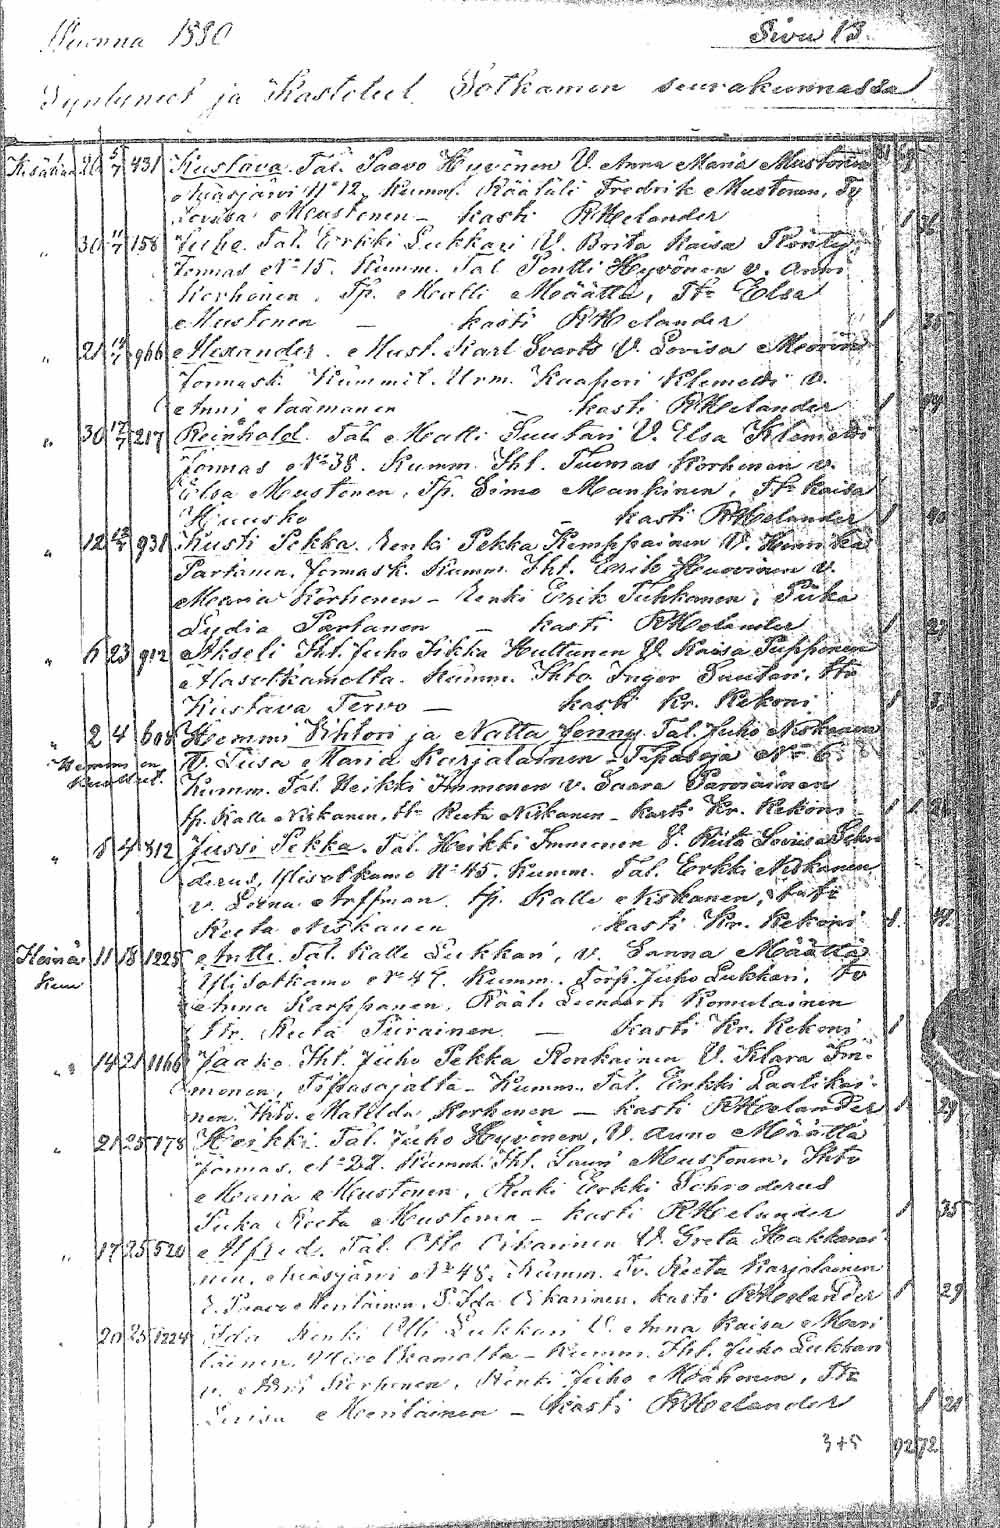 Vuonna 1890 Sivu 13
Syntyneet ja Kastetut Sotkamon seurakunnassa
Kesäkuu 26 5/7 431 Kustava. Tal. Paavo Hyvönen V. Anna Maria Mustonen
No 12. Kumm. Räätäli Fredrik Mustonen, Ty
Lovisa Mustonen – kasti RHelander 1 36
" 30 11/7 158 Juho. Tal. Erkki Lukkari V. Brita Kaisa
Jormas No 15. Kumm. Tal. Pentti Hyvönen v. Anni
Korhonen, Tp. Matti Määttä, Tr Elsa
Mustonen – kasti RHelander 1 35
" 21 966 Alexander. Karl Svarts V. Lovisa
Jormask. Kummit. Urm. Kaapori Klemetti v.
Anni Näämanen kasti RHelander 1
" 30 217 Reinhold. Tal. Matti Suutari V. Elsa Klemetti
Jormas No 38. Kumm. Iht. Tuomas Korhonen v.
Elsa Mustonen, Tp. Simo Mankinen, Tr Kaisa
Huusko kasti RHelander 1 40
" 12 931 Kusti Pekka. Renki Pekka Kemppainen V. Henrika
Partanen. Jormask. Kumm. Iht. Erik Huovinen v.
Maria Korhonen – Renki Erik Tuhkanen, Piika
Lydia Partanen – kasti RHelander 1 27
" 6 23 912 Akseli Iht. Juho Pekka Huttunen V. Kaisa Tupponen
Alasotkamolta. Kumm. Ihto Inger Suutari, tto
Kustava Tervo – kasti Kr. Rekoni 1
" 2 4 608 Hemmi Vihtori ja Natta Jenny Tal. Juho Niskanen
Hemmi on kuollut. V. Liisa Maria Karjalainen – Tipasoja No 6
Kumm. Tal. Heikki Immonen v. Saara Parviainen
tp. Kalle Niskanen, tr Reeta Niskanen – kasti Kr. Rekoni 1 1
" 8 4 812 Jussi Pekka. Tal. Heikki Immonen V. Riita Lovisa Schro
derus, Ylisotkamo No 45. Kumm. Tal. Erkki Niskanen
v. Leena Auffman. tp. Kalle Niskanen,
Reeta Niskanen kasti Kr. Rekoni 1.
Heinä
kuu 11 18 1225 Antti. Tal. Kalle Lukkari, v. Sanna Määttä
Yli Sotkamo No 47. Kumm. Torp. Juho Lukkari, to
Anna Karppanen, Räät. Leenartti Komulainen
ttr. Reeta Piirainen. – kasti Kr. Rekoni 1
" 14 21 1166 Jaako. Iht. Juho Pekka Ronkainen V. Klara Im-
monen, Tipasojalta – Kumm. Tal. Erkki Laatikai-
nen, Ihto. Matilda Korhonen – kasti RHelander 1 29
" 21 25 178 Heikki. Tal. Juho Hyvönen, V. Anna Määttä
Jormas. No 22. Kumm. Iht. Lauri Mustonen, Ihto
Maria Mustonen, Renki Erkki Schroderus
Piika Reeta Mustonen – kasti RHelander 1 35
" 17 25 520 Alfred. Tal. Otto Oikarinen V. Greta Hakkarai-
nen. No 48. Kumm. Tr. Reeta Karjalainen
R. Paavo Meriläinen, P. Ida Oikarinen, kasti RHelander 1 29
" 20 25 1224 Ida Renki Olli Lukkari V. Anna Kaisa Meri
läinen. – Kumm. Iht. Juho Lukkari
v. Anni Karpanen, Renki Juho Mähönen, Ttr
Lovisa Meriläinen – kasti RHelander 1
3+5 92 72